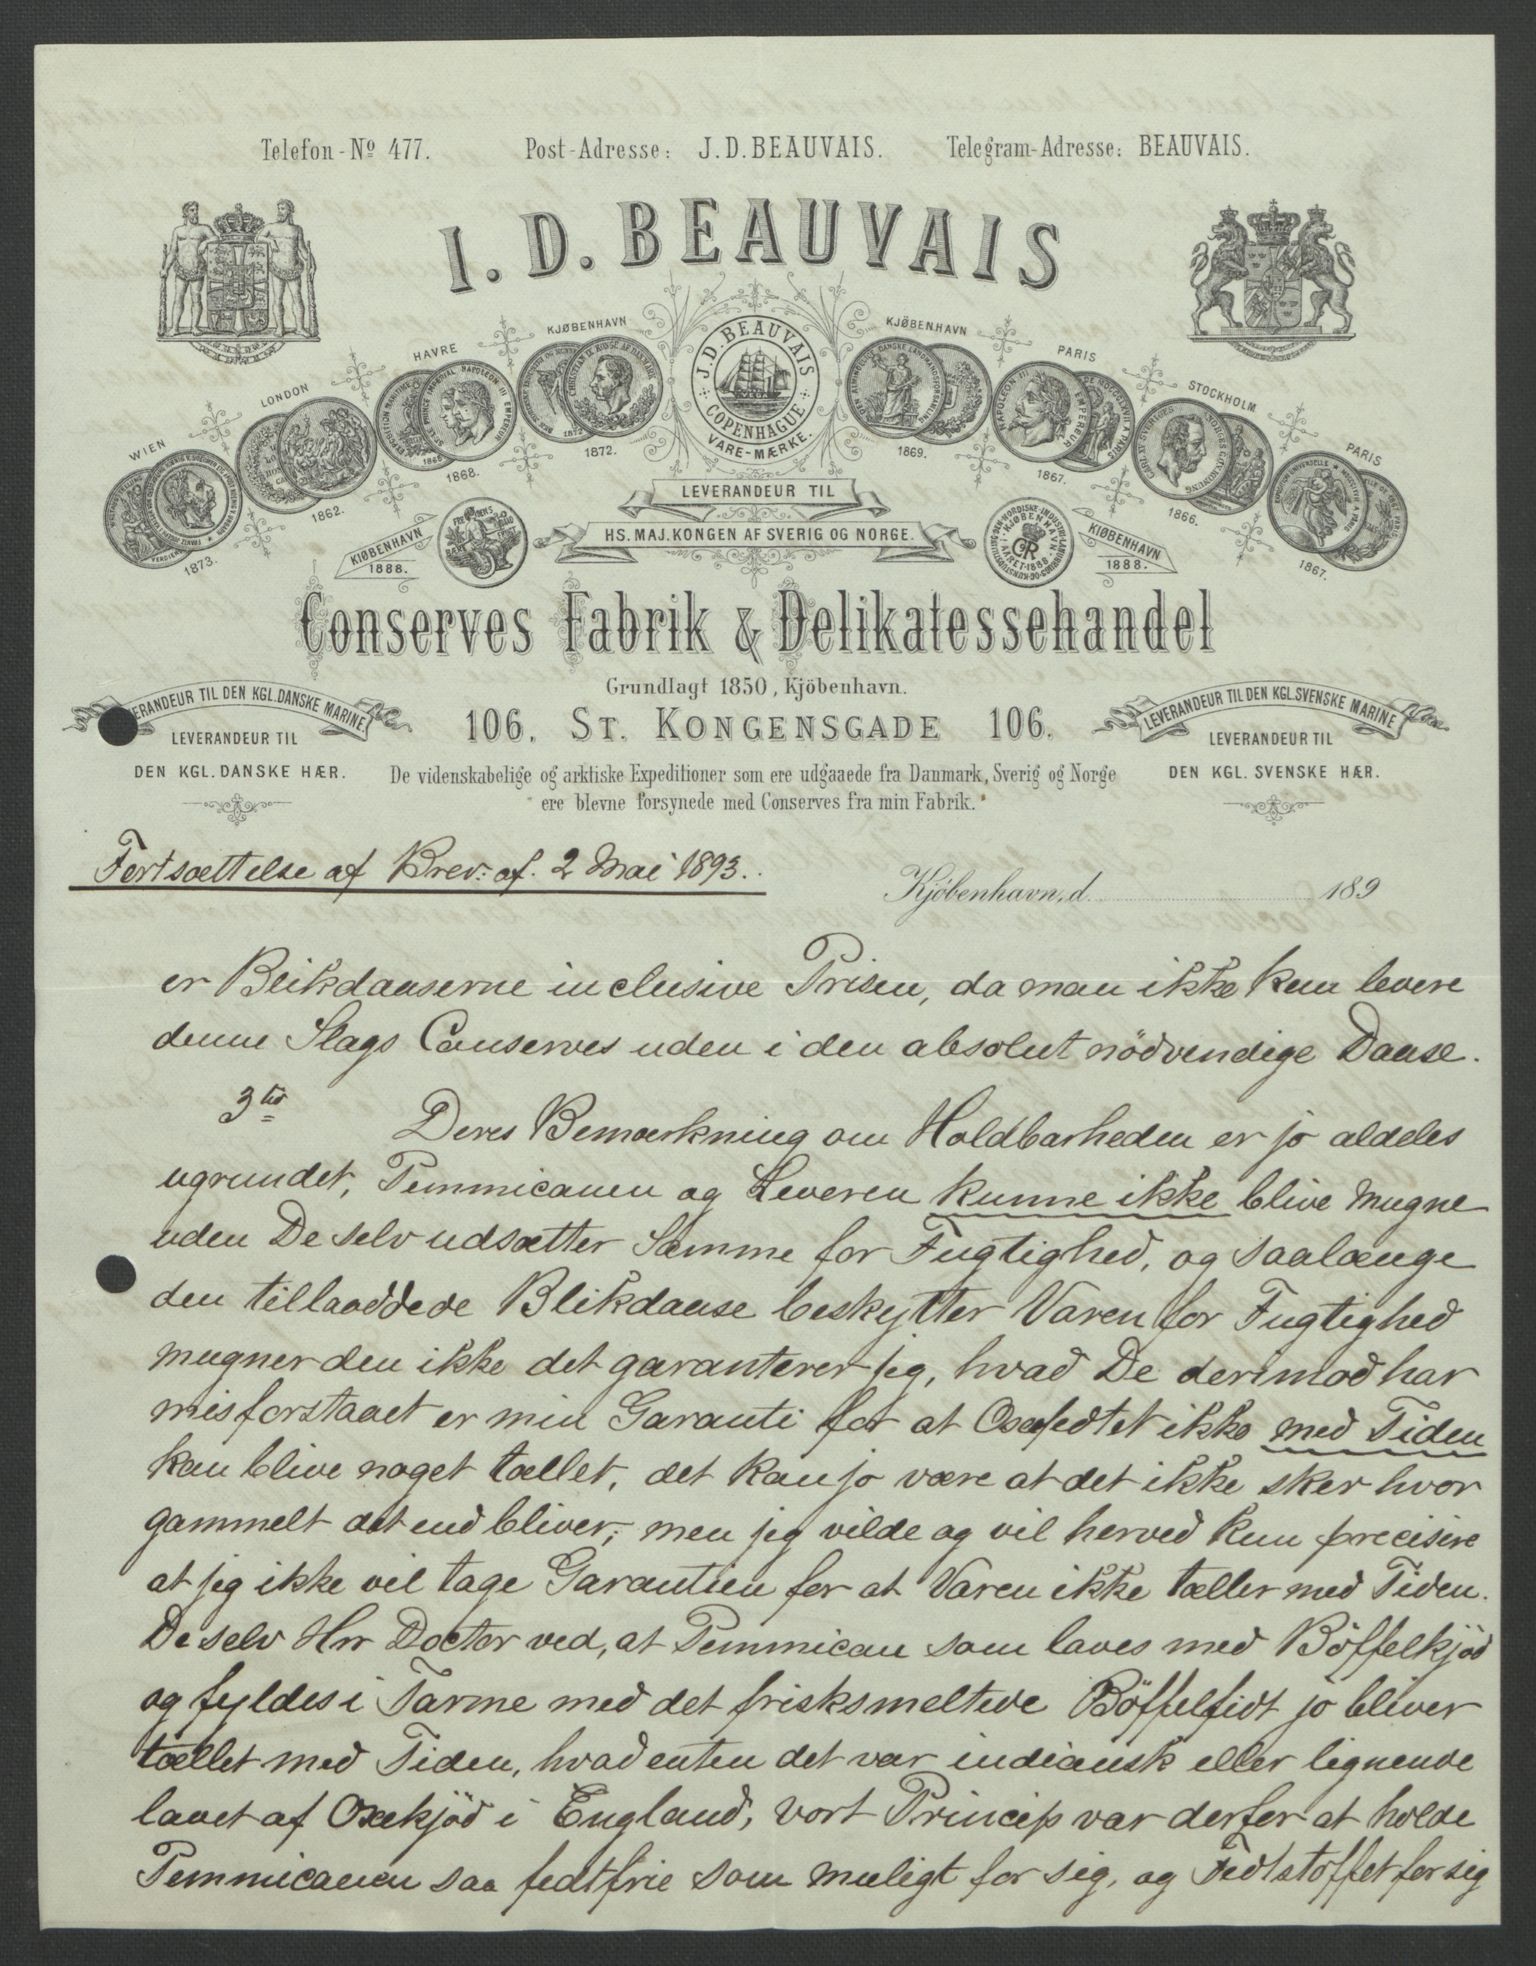 Telefon-No 477. Post-Adresse: J.D. BEAUVAIS. Telegram-Adresse: BEAUVAIS.
I. D. BEAUVAIS
WIEN 1873.
LONDON 1862.
HAVRE 1868.
KJØBENHAVN 1872.
J.D. BEAUVAIS COPENHAGUE
VARE-MÆRKE.
KJØBENHAVN 1869.
PARIS 1867.
STOCKHOLM 1866.
PARIS 1867.
LEVERANDEUR TIL
HS. MAJ. KONGEN AF SVERIG OG NORGE.
KIØBENHAVN 1888.
KIØBENHAVN 1888.
Conserves Fabrik & Delikatessehandel
Grundlagt 1850, Kjöbenhavn.
106. ST. KONGENSGADE 106.
ERANDEUR TIL DEN KGL. DANSKE MARINE.
LEVERANDEUR TIL
DEN KGL. DANSKE HÆR.
LEVERANDEUR TIL DEN KGL. SVENSKE MARINE
LEVERANDEUR TIL
DEN KGL. SVENSKE HÆR.
De videnskabelige og arktiske Expeditioner som ere udgaaede fra Danmark, Sverig og Norge
ere blevne forsynede med Conserves fra min Fabrik.
Fortsættelse af Brev: af. 2 Mai 1893.
Kjöbenhavn, d. 189
er Blikdaaserne inclusive Prisen, da man ikke kan levere
denne Slags Conserves uden i den absolut nödvendige Daase.
3tio Deres Bemærkning om Holdbarheden er jo aldeles
ugrundet, Pemmicanen og Leveren kunne ikke blive mugne
uden De selv udsætter Samme for Fugtighed, og saalænge
den tilloddede Blikdaase beskytter Varen for Fugtighed
mugner den ikke det garanterer jeg, hvad De derimod har
misforstaaet er min Garanti for at Oxefedtet ikke med Tiden
kan blive noget tællet, det kan jo være at det ikke sker hvor
gammelt det end bliver, men jeg vilde og vil herved kun precisire
at jeg ikke vil tage Garantien for at Varen ikke tæller med Tiden.
De selv Hrr Doctor ved, at Pemmican som laves med Böffelkjöd
og fyldes i Tarme med det frisksmeltede Böffelfidt jo bliver
tællet med Tiden, hvad enten det var indiansk eller lignende
lavet af Oxekjöd i England, vort Princip var derfor at holde
Pemmicanen saa fedtfrie som muligt for sig, og Fedtstoffet for sig